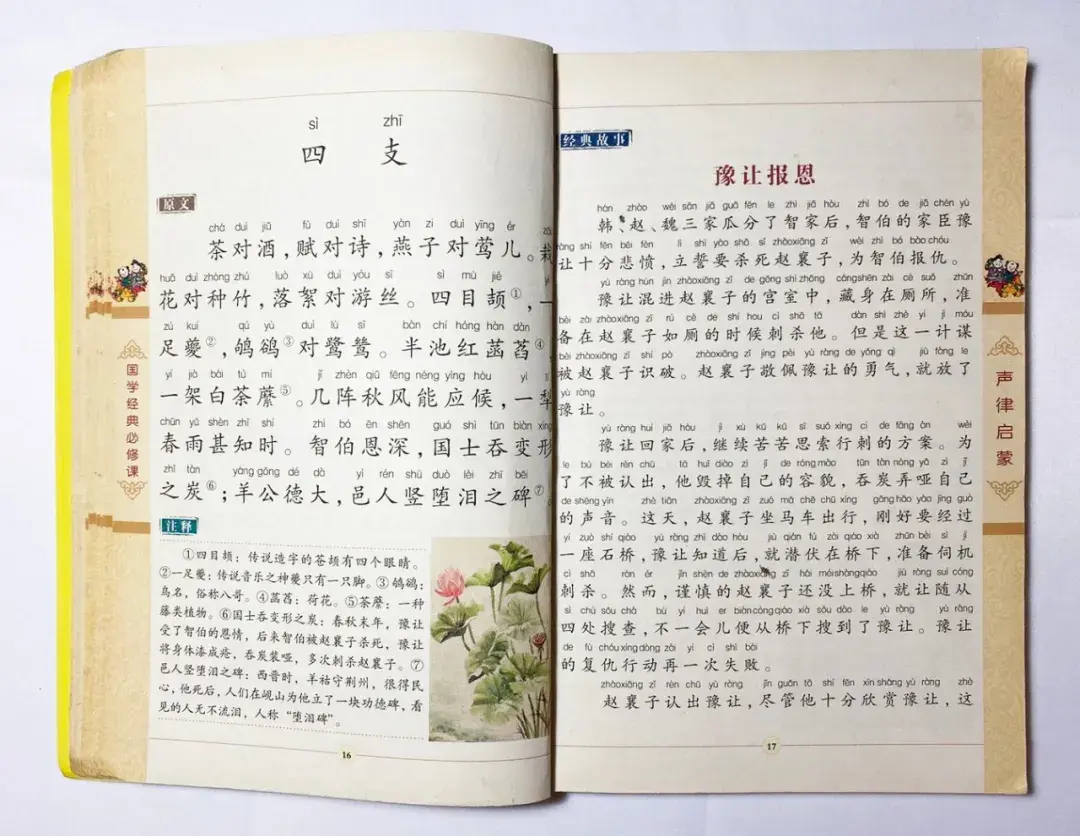 国学经典必修课
sì zhī
四 支
原文
chá duì jiǔ fù duì shī yàn zi duì yīng ér
茶对酒，赋对诗，燕子对莺儿。栽
huā duì zhòng zhú luò xù duì yóu sī sì mù jié
花对种竹，落絮对游丝。四目颉①，一
zú kuí qú yù duì lù sī bàn chí hóng hàn dàn
足夔②，鸲鹆③对鹭鸶。半池红菡萏④，
yí jià bái tú mí jǐ zhèn qiū fēng néng yìng hòu yì lí
一架白荼蘼⑤。几阵秋风能应候，一犁
chūn yǔ shèn zhī shí zhì bó ēn shēn guó shì tūn biàn xíng
春雨甚知时。智伯恩深，国士吞变形
zhī tàn yáng gōng dé dà yì rén shù duò lèi zhī bēi
之炭⑥；羊公德大，邑人竖堕泪之碑⑦。
注释
①四目颉：传说造字的苍颉有四个眼睛。
②一足夔：传说音乐之神夔只有一只脚。③鸲鹆：
鸟名，俗称八哥。④菡萏：荷花。⑤荼蘼：一种
藤类植物。⑥国士吞变形之炭：春秋末年，豫让
受了智伯的恩情，后来智伯被赵襄子杀死，豫让
将身体漆成疮，吞炭装哑，多次刺杀赵襄子。⑦
邑人竖堕泪之碑：西晋时，羊祜守荆州，很得民
心，他死后，人们在岘山为他立了一块功德碑，看
见的人无不流泪，人称“堕泪碑”。
16
经典故事
豫让报恩
hán zhào wèi sān jiā guā fēn le zhì jiā hòu zhì bó de jiā chén yù
韩、赵、魏三家瓜分了智家后，智伯的家臣豫
ràng shí fēn bēi fèn lì shì yào shā sǐ zhàoxiāng zǐ wèi zhì bó bàochóu
让十分悲愤，立誓要杀死赵襄子，为智伯报仇。
yù ràng hùn jìn zhàoxiāng zǐ de gōng shì zhōng cángshēn zài cè suǒ zhǔn
豫让混进赵襄子的宫室中，藏身在厕所，准
bèi zài zhàoxiāng zǐ rú cè de shí hou cì shā tā dàn shì zhè yí jì móu
备在赵襄子如厕的时候刺杀他。但是这一计谋
bèi zhàoxiāng zǐ shí pò zhàoxiāng zǐ jìng pèi yù ràng de yǒng qì jiù fàng le
被赵襄子识破。赵襄子敬佩豫让的勇气，就放了
yù ràng
豫让。
yù ràng huí jiā hòu jì xù kǔ kǔ sī suǒ xíng cì de fāng àn wèi
豫让回家后，继续苦苦思索行刺的方案。为
le bú bèi rèn chū tā huǐ diào zì jǐ de róng mào tūn tàn nòng yǎ zì jǐ
了不被认出，他毁掉自己的容貌，吞炭弄哑自己
de shēng yīn zhè tiān zhàoxiāng zǐ zuò mǎ chē chū xíng gāng hǎo yào jīng guò
的声音。这天，赵襄子坐马车出行，刚好要经过
yí zuò shí qiáo yù ràng zhī dào hòu jiù qián fú zài qiáo xià zhǔn bèi sì jī
一座石桥，豫让知道后，就潜伏在桥下，准备伺机
cì shā rán ér jǐn shèn de zhàoxiāng zǐ hái méi shàngqiáo jiù ràng suí cóng
刺杀。然而，谨慎的赵襄子还没上桥，就让随从
sì chù sōu chá bù yí huì er biàncóngqiáo xià sōu dào le yù ràng yù ràng
四处搜查，不一会儿便从桥下搜到了豫让。豫让
de fù chóuxíngdòng zài yí cì shī bài
的复仇行动再一次失败。
zhàoxiāng zǐ rèn chū yù ràng jǐn guǎn tā shí fēn xīn shǎng yù ràng zhè
赵襄子认出豫让，尽管他十分欣赏豫让，这
17
声律启蒙